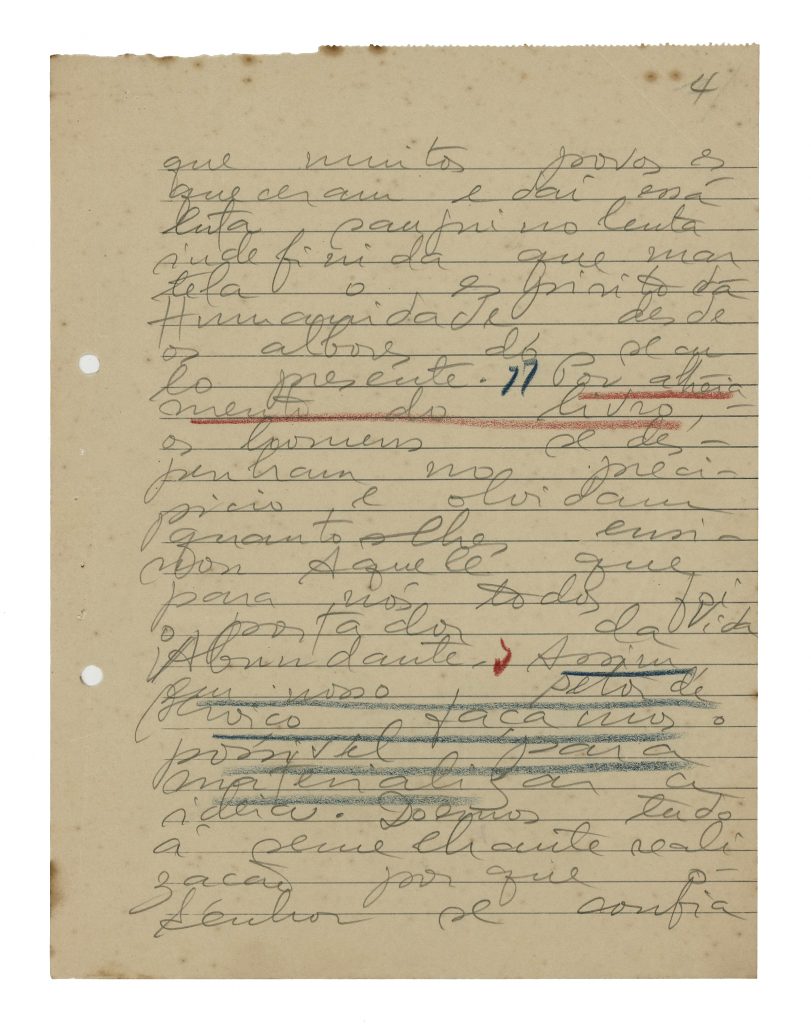 4
que muitos povos es
queceram e daí essa
luta sanguinolenta
indefinida que mar
tela o espirito da
Humanidade desde
os albores do secu
lo presente. 77 Por alheia
mento do livro, -
os homens se des-
penham no preci-
picio, e olvidam
quanto lhes ensi-
nou Aquele que
para nós todos foi
o portador da Vida
Abundante. Assim
em nosso setor de
serviço façamos o
possivel para
materializar a
ideia. Doemos tudo
á semelhante reali
zacão porque o
Senhor se confia